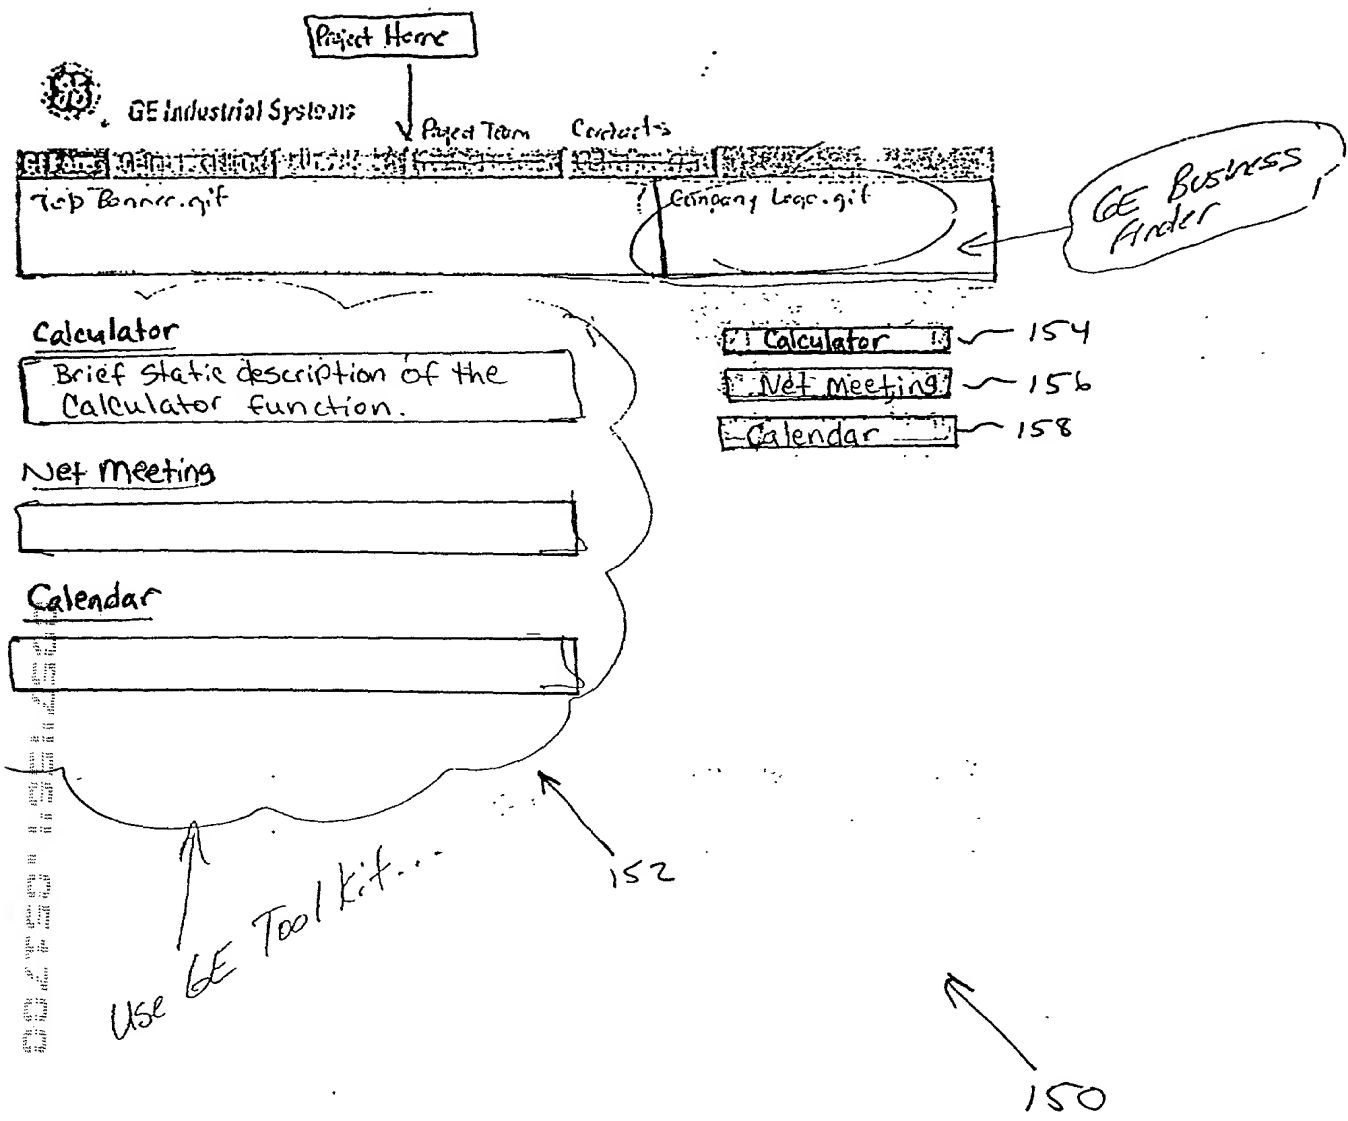 Project Home
GE Industrial Systems
Project Team
Contacts
Top Banner.gif
Company Logo.gif
GE Business
finder
Calculator
Brief static description of the
Calculator function.
Net Meeting
Calendar
Calculator
154
Net Meeting
156
Calendar
158
152
Use GE Tool Kit...
150